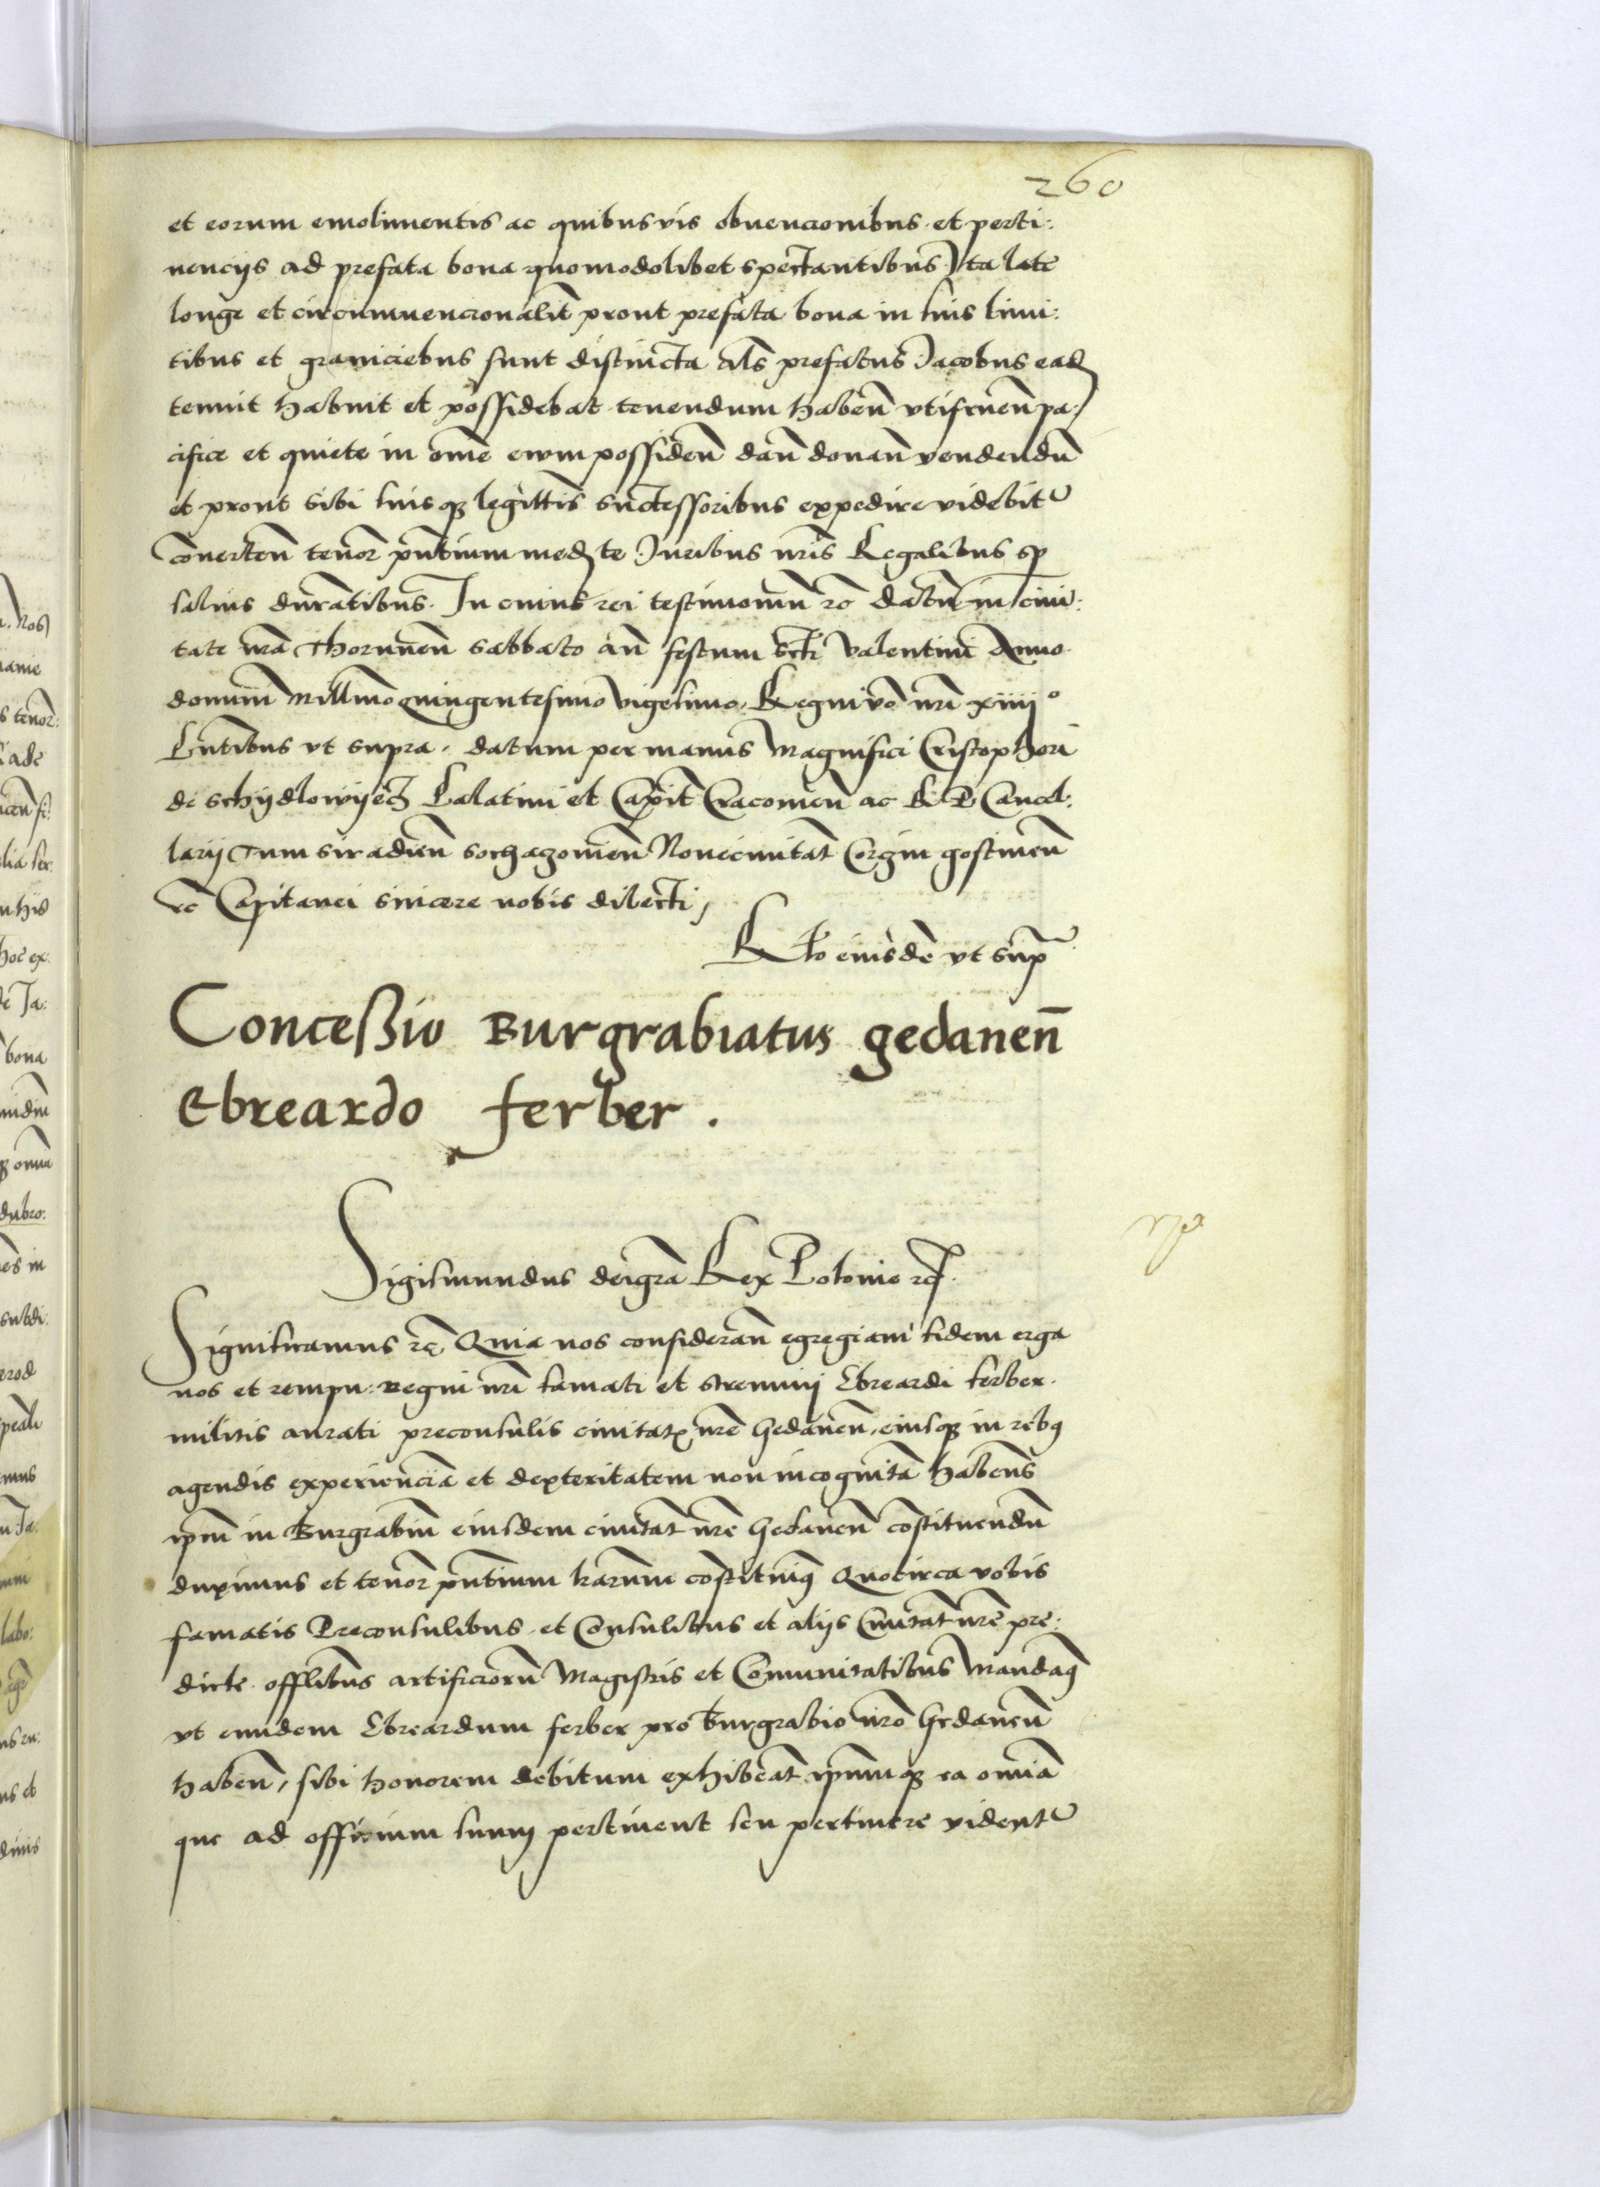 260
et eorum emolimentis ac quibusvis obvencionibus et perti:
nencijs ad prefata bona quomodolibet spectantibus Ita late
longe et circumvencionalit prout prefata bona in suis limi:
tibus et graniciebus sunt distincta als prefatus Jacobus ead
tenuit habuit et possidebat tenendum haben utifruen pa/
cifice et quiete in ome evum possiden dan donan vendendu
et prout sibi suisq legittis successoribus expedire videbit
converten tenor pntium med te Juribus nris Regalibus sp
salvis durantibus. In cuius rei testimoniu rc datu in civi:
tate nra Thorunen sabbato an festum scti Valentini Anno
domini Millmo quingentesimo vigesimo. Regni vo nri xiiij°
Pntibus ut supra. datum per manus Magnifici Cristophori
de schydlowyecz Palatini et Capit Cracovien ac R P Cancel:
larij Tum siradien sochazovien Novecivitat Corzin gostinen
rc Capitanei sincere nobis dilecti,
Rlo eiusde ut sup
Conceßio Burgrabiatus gedanen
Ebreardo ferber.
Sigismundus dei gra Rex Polonie rc
Significamus rc Quia nos consideran egregiam fidem erga
nos et rempu: Regni nri famati et strenuij Ebreardi ferber.
militis aurati preconsulis civitat nre Gedanen, eiusq in rebus
agendis experiencia et dexteritatem non incognita habens
ipm in Burgrabiu eiusdem civitat nre Gedanen costituendu
duximus et tenor pntium harum costituimus Quocirca vobis
famatis Preconsulibus et Consulibus et alijs Civitat nre pre:
dicte offlibus artificioru Magistris et Comunitatibus Mandamus
ut eundem Ebreardum ferber pro Burgrabio nro Gedanen
haben, sibi honorem debitum exhibeat ipsumq ea omia
que ad officium suum pertinent seu pertinere videnter